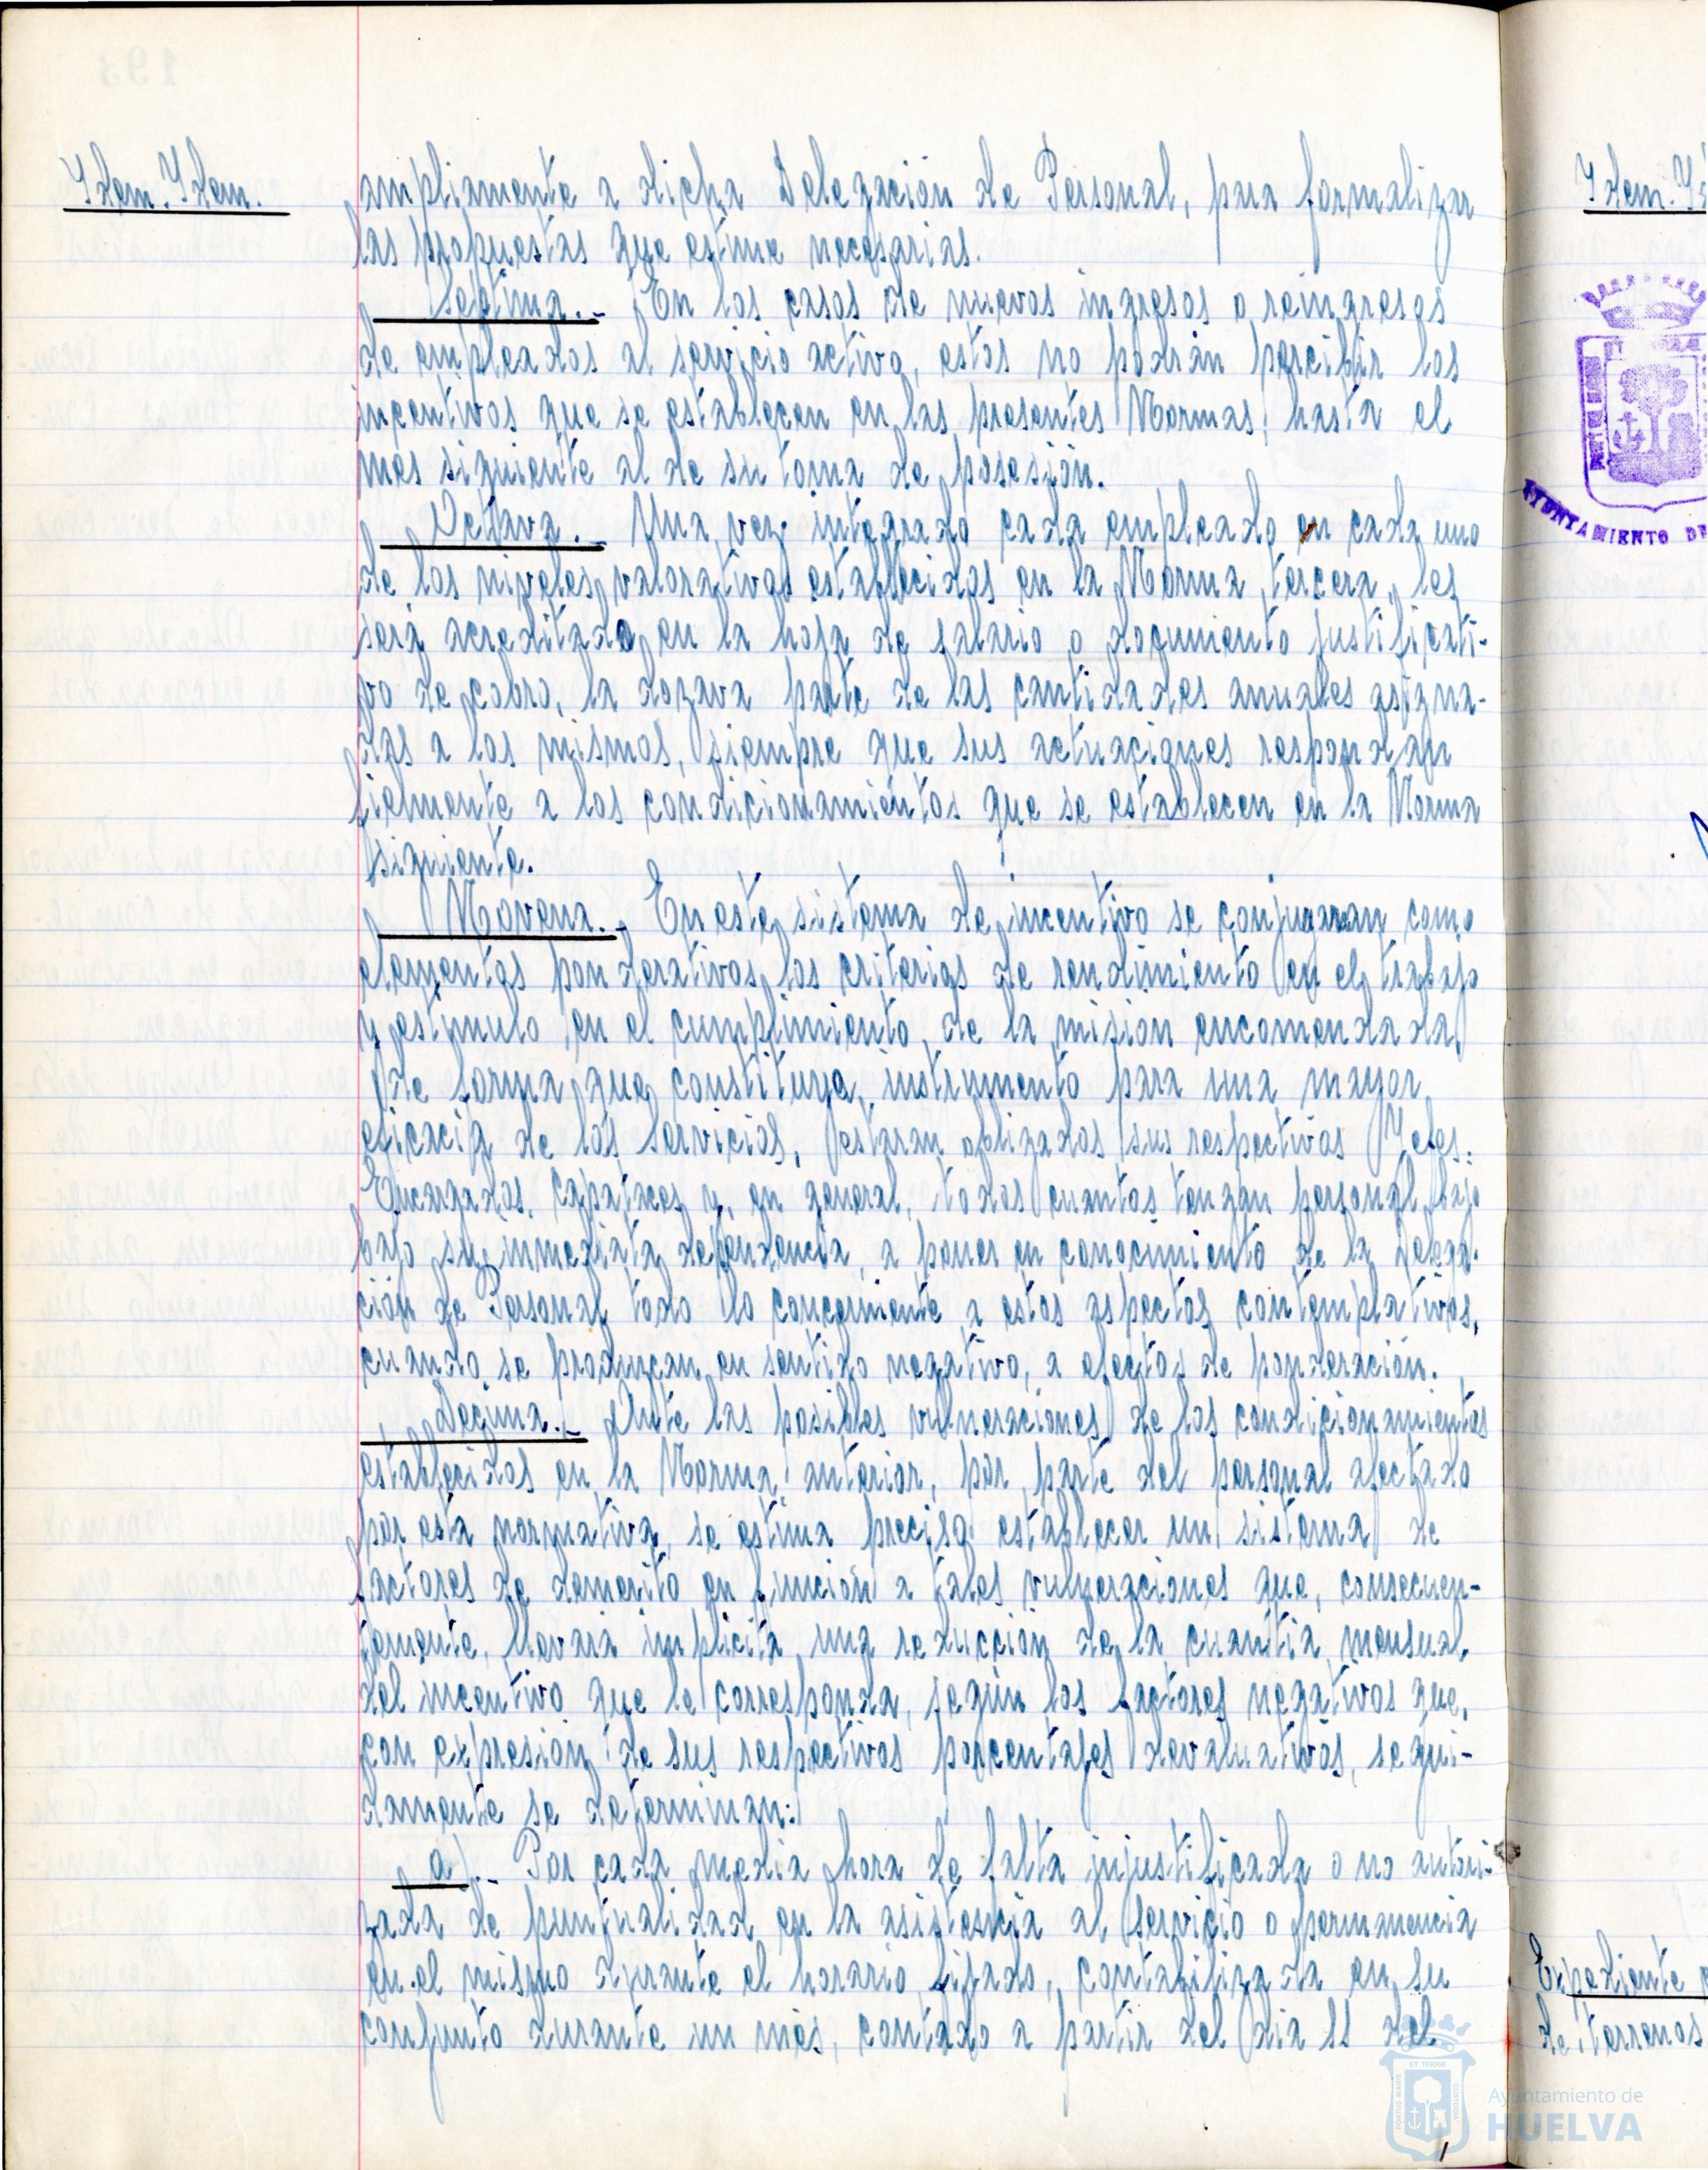 Idem. Idem.
ampliamente a dicha Delegación de Personal, para formalizar
las propuestas que estime necesarias.
Séptima.- En los casos de nuevos ingresos o reingresos
de empleados al servicio activo, estos no podrán percibir los
incentivos que se establecen en las presentes Normas, hasta el
mes siguiente al de su toma de posesión.
Octava.- Una vez integrado cada empleado en cada uno
de los niveles valorativos establecidos en la Norma tercera, les
será acreditado en la hoja de salario o documento justificati-
vo de cobro, la dozava parte de las cantidades anuales asigna-
das a los mismos, siempre que sus actuaciones respondan
fielmente a los condicionamientos que se establecen en la Norma
siguiente.
Novena.- En este sistema de incentivo se conjugaran como
elementos ponderativos los criterios de rendimiento en el trabajo
y estimulo en el cumplimiento de la misión encomendada
de forma que constituya instrumento para una mayor
eficacia de los servicios, estaran obligados sus respectivos Jefes.
Encargados, Capataces y, en general, todos cuantos tengan personal bajo
bajo su inmediata dependencia, a poner en conocimiento de la Delega-
ción de Personal todo lo concerniente a estos aspectos contemplativos,
cuando se produzcan en sentido negativo, a efectos de ponderación.
Décima.- Ante las posibles vulneraciones de los condicionamientos
establecidos en la Norma anterior, por parte del personal afectado
por esta normativa, se estima preciso establecer un sistema de
factores de demerito en función a tales vulneraciones que, consecuen-
temente, llevará implícita una reducción de la cuantía mensual
del incentivo que le corresponda, según los factores negativos que,
con expresión de sus respectivos porcentajes devaluativos, segui-
damente se determinan:
a).- Por cada media hora de falta injustificada o no autori-
zada de puntualidad en la asistencia al servicio o permanencia
en el mismo durante el horario fijado, contabilizada en su
conjunto durante un mes, contado a partir del dia 11 del
Idem.
AYUNTAMIENTO DE
Expediente
de terrenos
Ayuntamiento de
HUELVA